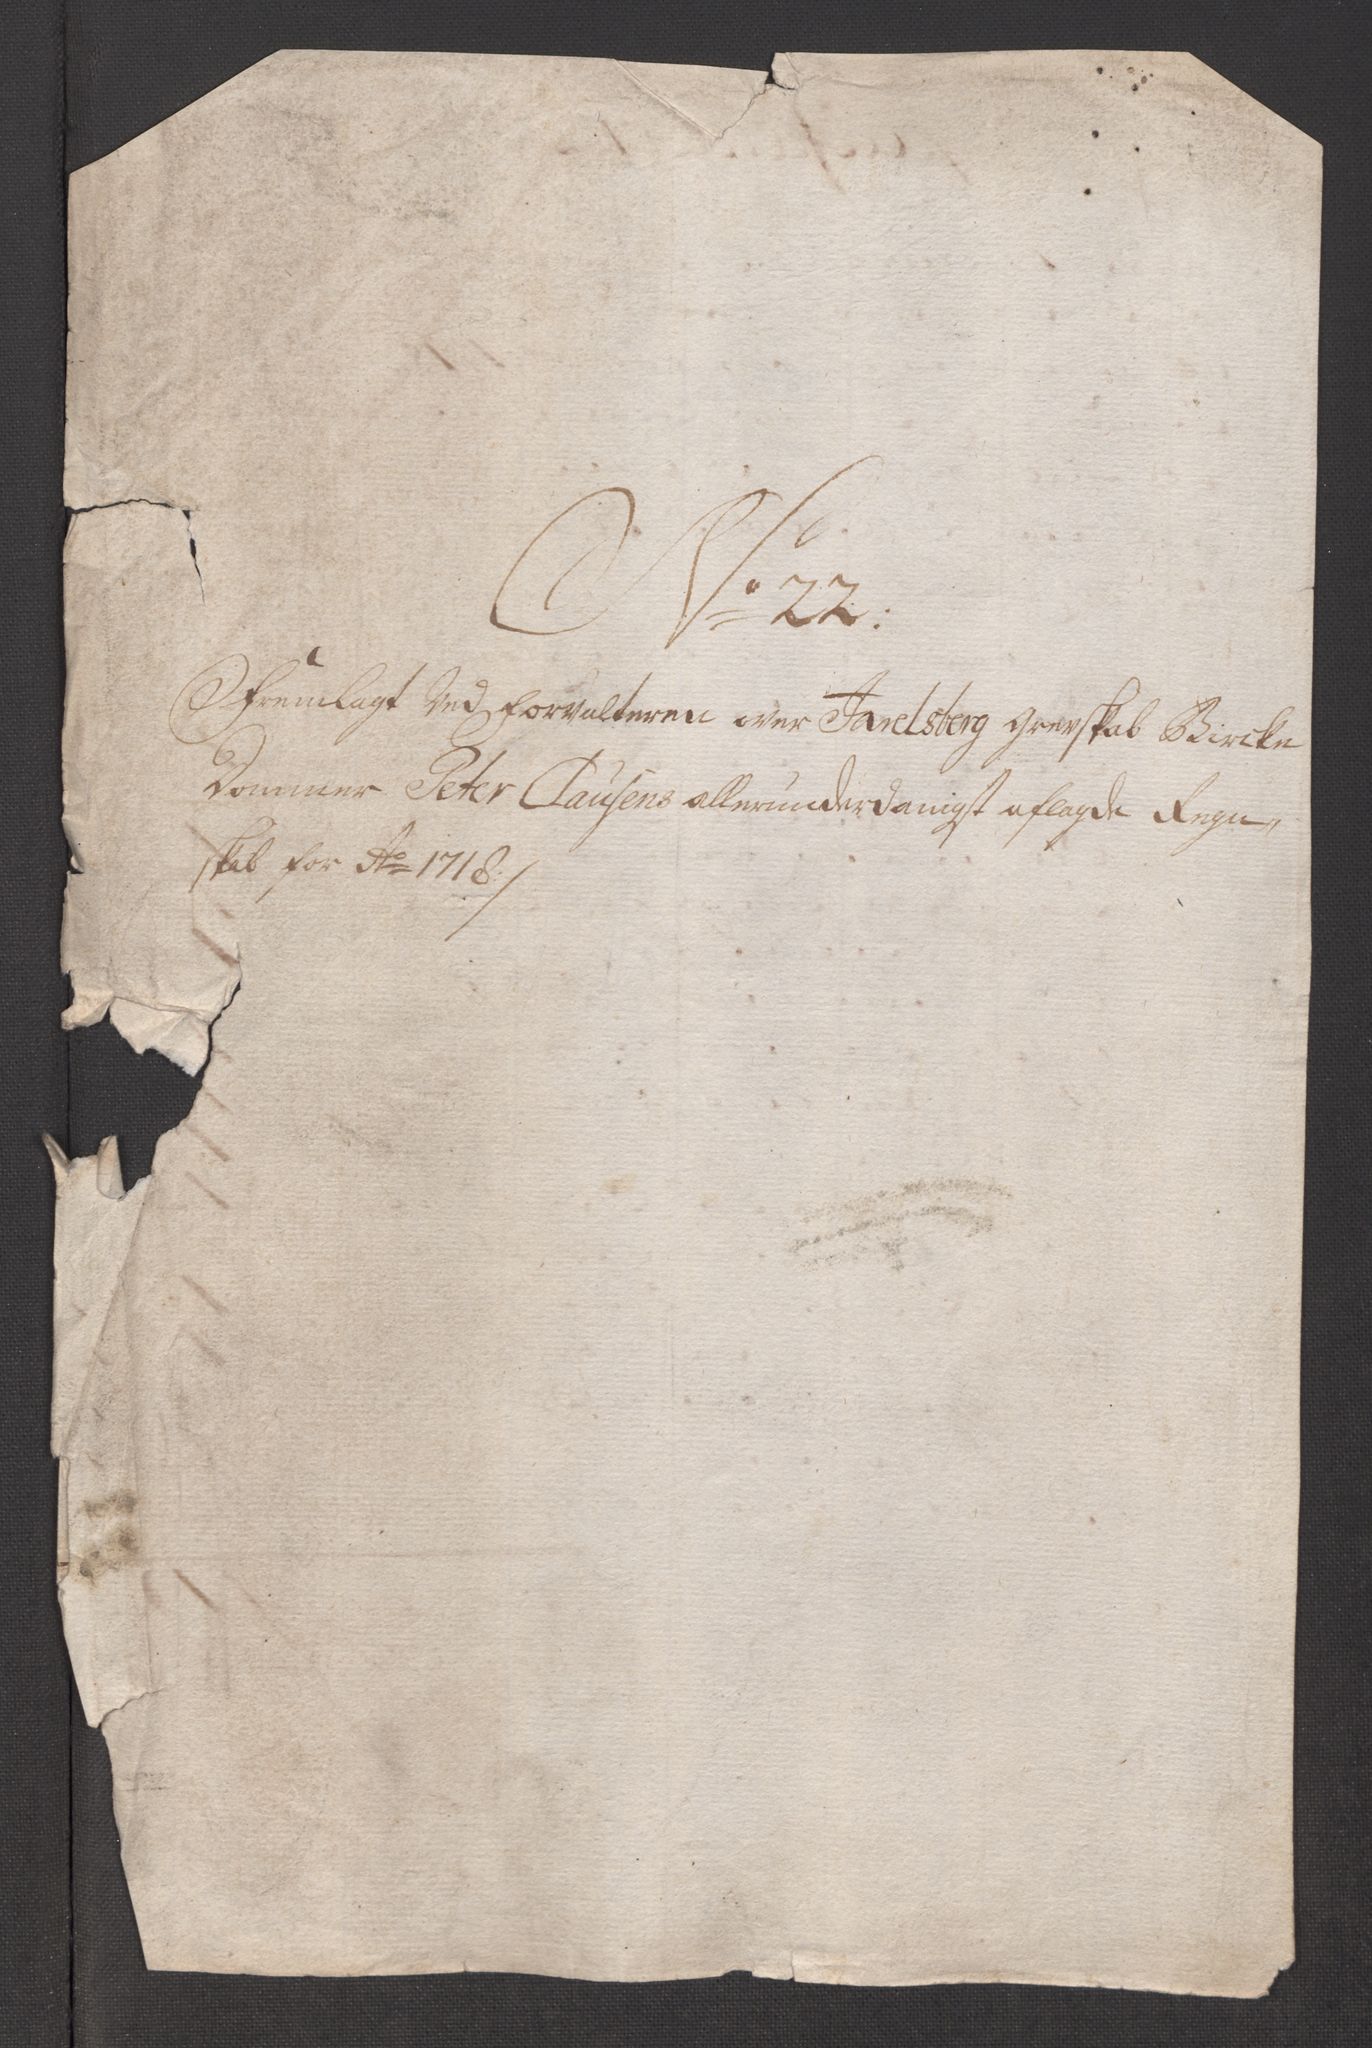 No 22:
Fremlagt Ved forvalteren over Jarelsberg grevskab Bircke
Dommer Peter Clausens allerunderdanigst aflagde Regn„
skab for Ao 1718./